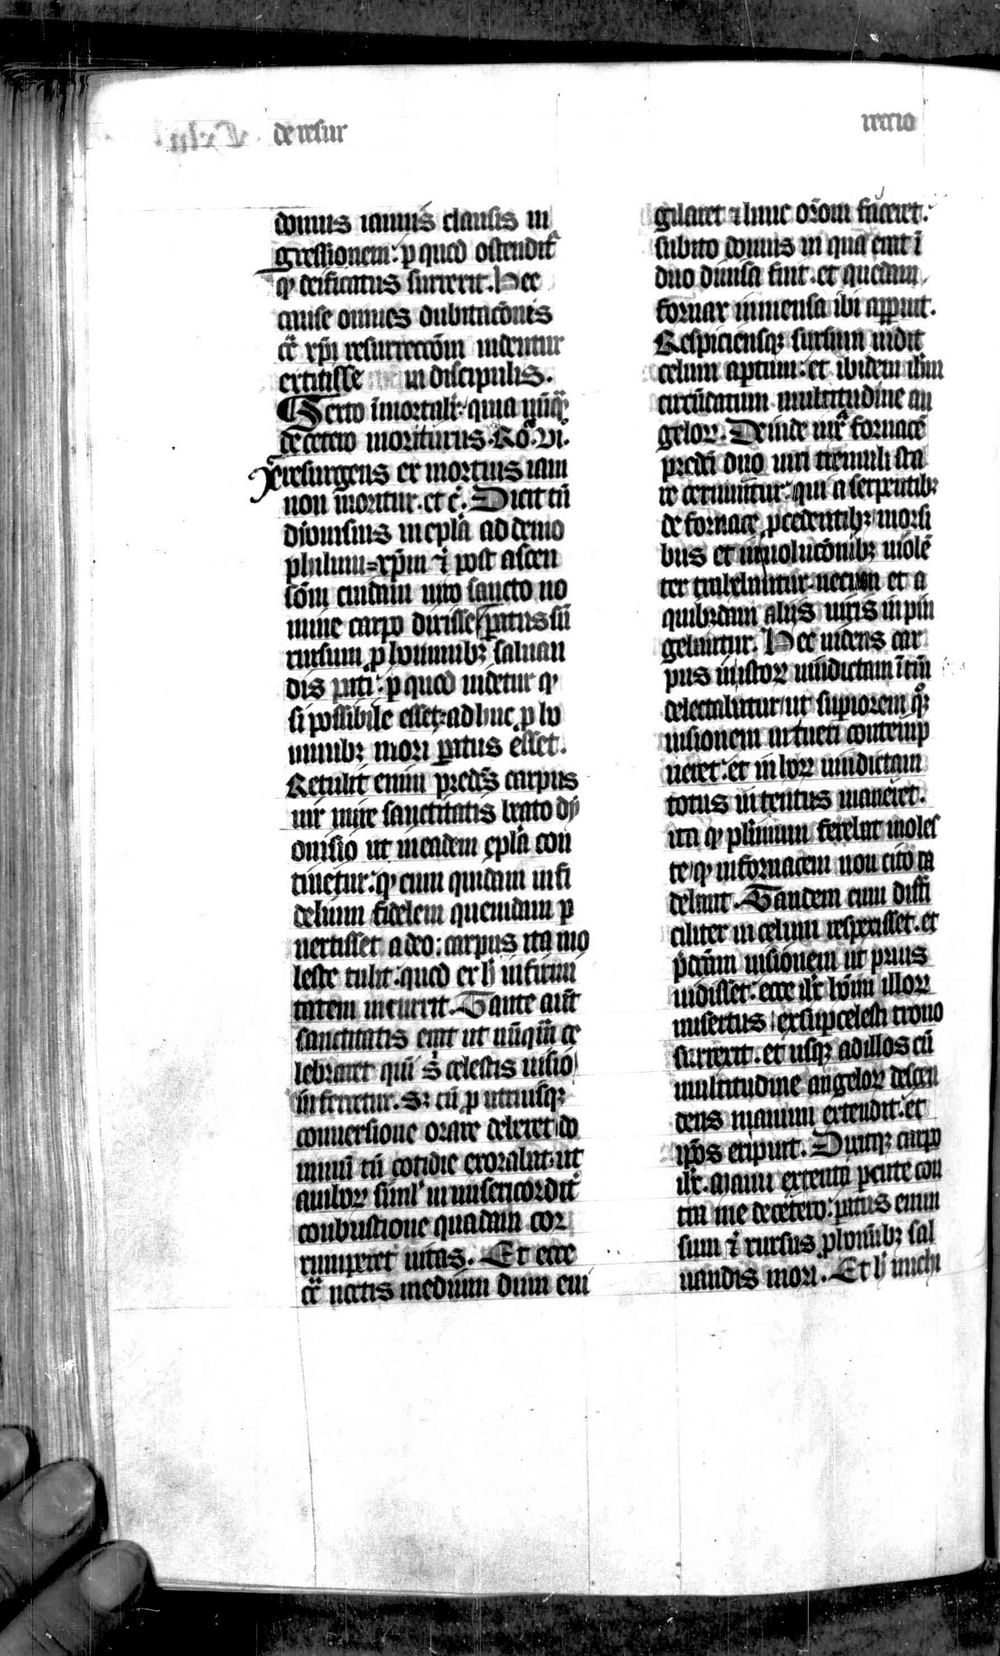 de resur
rectio
domus ianuis clausis in
gressionem: p quod ostendit᷑
qͥ deificatus surrexit. Hee
cause omnes dubitacōnis
cc̄ xp̄i resurreccōm videntur
extitisse in discipulis.
Sexto īmortalit᷑: quia nūq̄
de cetero moriturus. Ro. vi.
xp̄c resurgens ex mortuis iam
non moritur. et c̄. Dicit tn̄
dyonisius in epl̄a ad demo
philum xp̄m etiā post ascen
sōm cuidam viro sancto no
mine carpo dixisse patus sū
rursum p hominibꝫ saluan
dis pati: p quod videtur qͥ
si possibile esset adhuc p ho
minibꝫ mori patus esset.
Retulit enim preds̄ carpus
vir mire sanctitatis beato dy
onisio ut in eadem epl̄a con
tinetur: qͥ cum quidam infi
delium fidelem quemdam p
uertisset a deo: carpus ita mo
leste tulit: quod ex h̄ infirmi
tatem incurrit. Tante aūt
sanctitatis erat ut nūq̄m ce
lebraret quī s̄ celestis visio
inferretur. Sꝫ cū p utriusqꝫ
conuersione orare deberet do
minū tn̄ cotidie exorabat: ut
ambos siml̄ in misericordit᷑
conbustione quadam cor
rumperet vitas. Et ecce
cc̄ noctis medium dum eui
gilaret et hunc orōem faceret.
subito domus in qua erat ī
duo diuisa fuit. et quedam
fornax inmensa ibi apparuit.
Respiciensqꝫ sursum vidit
celum aptum: et ibidem ih̄m
circūdatum multitudine an
gelorꝝ. Deinde iuxͣ fornacē
predc̄i duo viri tremuli sta
re cernūtur: qui a serpentibꝫ
de fornace pcedentibꝫ morsi
bus et inuolucōnibꝫ violē
ter trahebantur: necnon et a
quibꝫdam alijs viris inpin
gebantur. Hec videns car
pus in istorꝝ vindictam ītm̄
delectabatur: ut supiorem qͦꝫ
visionem intueri contemp
neret: et in horꝝ vindictam
totus intentus maneret.
ita qͥ plurimum ferebat moles
te qͥ in fornacem non cito ca
debant. Tandem cum diffi
ciliter in celum respexisset. et
pdcām visionem ut prius
vidisset: ecce ih̄c hoīm illorꝝ
misertus exsupcelesti trono
surrexit. et usqꝫ ad illos cū
multitudine angelorꝝ descen
dens manum extendit. et
ip̄os eripuit. Dixitqꝫ carpo
ih̄c. Manu extenta pcute con
tra me de cetero: patus enim
sum etiā rursus p hoīnibꝫ sal
uandis mori. Et h̄ michi